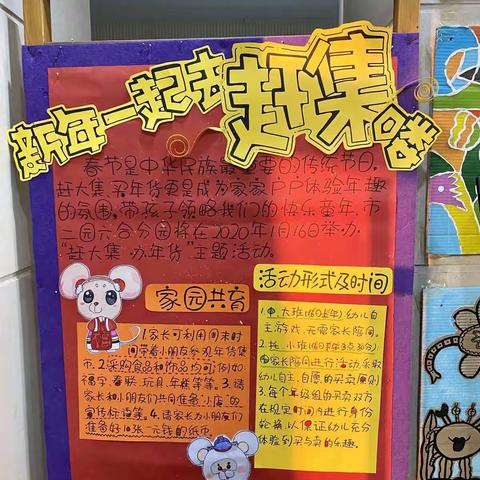 新年一起去赶集喽
春节是中华民族最重要的传统节日，
赶大集、买年货更是成为家家户户体验年趣
的氛围。带孩子领略我们的快乐童年，市
二园六合分园将在2020年1月16日举办
“赶大集·办年货”主题活动。
家园共育
1.家长可利用周末时
间带着小朋友参观年货集
市。2.采购食品和饰品均可(例如：
福字、春联、玩具、年糕等等。3.请
家长和小朋友们共同准备“小店”的
宣传纸海报。4.请家长为小朋友们
准备好10张一元钱的纸币
活动形式及时间
1.中、大班(16日上午)幼儿自
主游戏，无需家长陪同。
2.托、小班(16日下午3点30分)
由家长陪同进行活动。采取
幼儿自主、自愿的买卖原则
3.每个年级组的买卖双方
在规定时间内进行身份
轮换，以保证幼儿充分
体验到买与卖的乐趣。